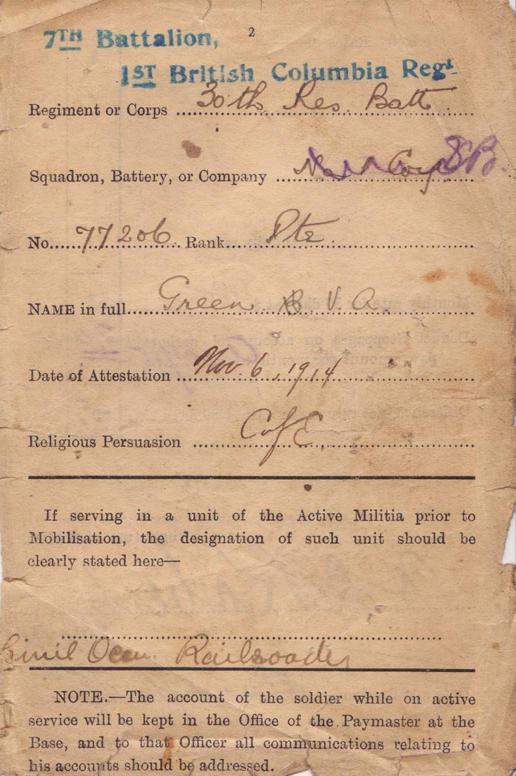 2
7TH Battalion,
1ST British Columbia Regt.
Regiment or Corps ........ 30th Res. Batt
Squadron, Battery, or Company ........ Coy
No. 77206 Rank Pte
NAME in full Green B. V. A.
Date of Attestation Nov. 6, 1914
Religious Persuasion C of E.
If serving in a unit of the Active Militia prior to
Mobilisation, the designation of such unit should be
clearly stated here—
Civil Occu. Railroader
NOTE.—The account of the soldier while on active
service will be kept in the Office of the Paymaster at the
Base, and to that Officer all communications relating to
his accounts should be addressed.